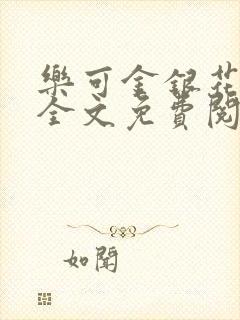 樂可金銀花
全文免費閱
如聞